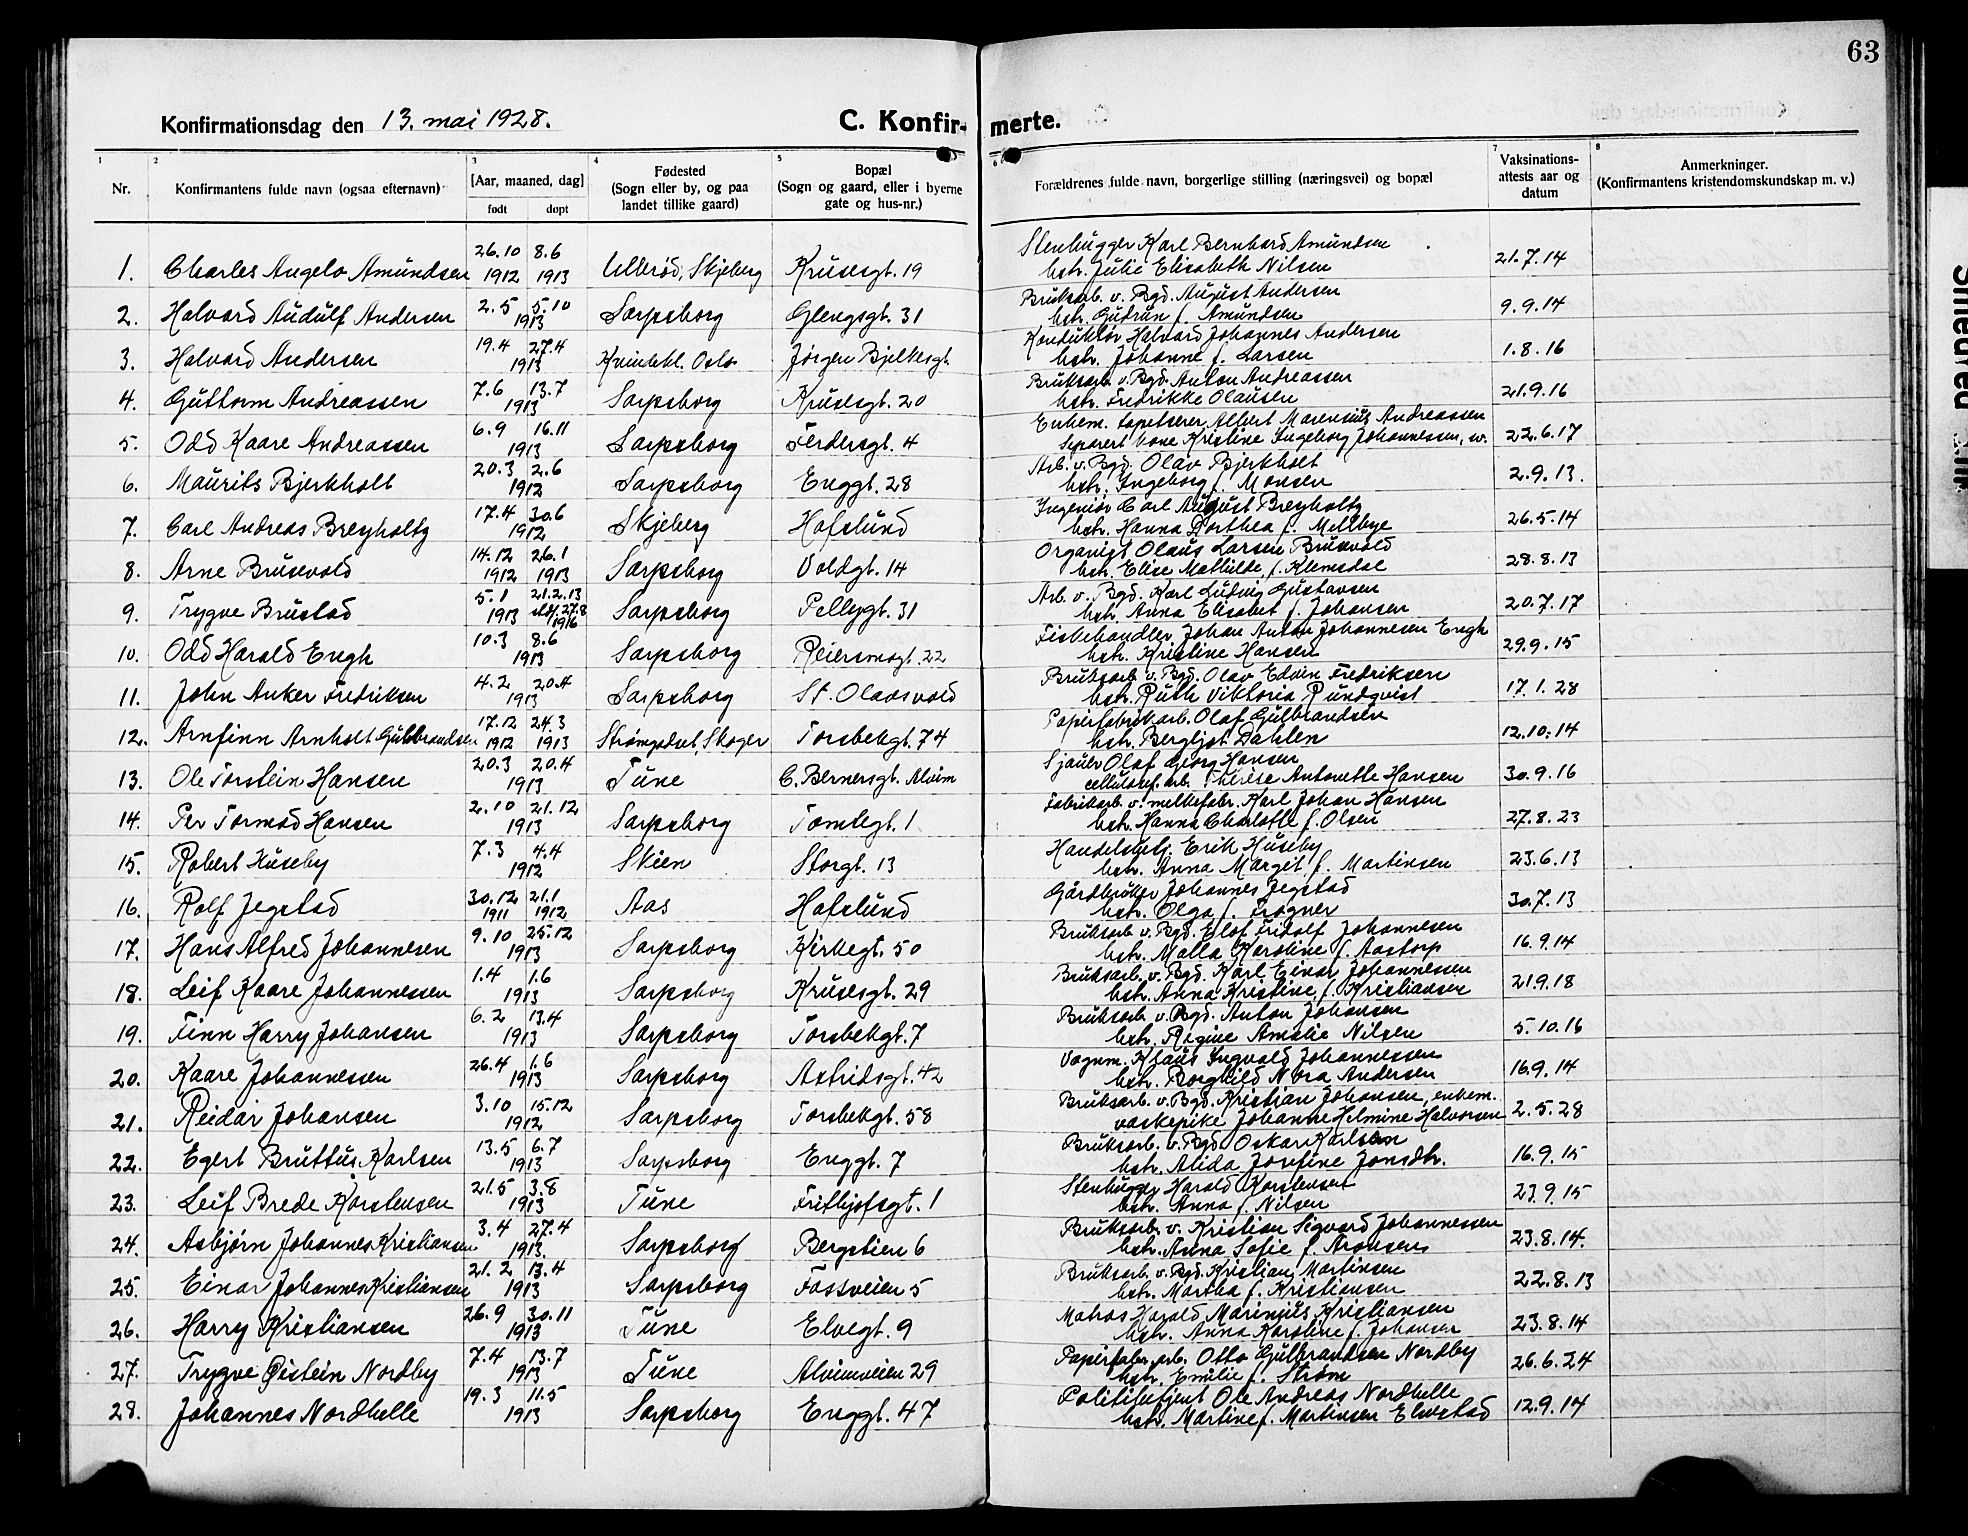 63
Konfirmationsdag den 13. mai 1928. C. Konfirmerte.
1 2 3 4 5 6 7 8
Nr. Konfirmantens fulde navn (ogsaa efternavn) [Aar, maaned, dag] født døpt Fødested (Sogn eller by, og paa landet tillike gaard) Bopæl (Sogn og gaard, eller i byerne gate og hus-nr.) Forældrenes fulde navn, borgerlige stilling (næringsvei) og bopæl Vaksinationsattests aar og datum Anmerkninger. (Konfirmantens kristendomskundskap m. v.)
1. Charles Angelo Amundsen 26.10 1912 8.6 1913 Ullerød, Skjeberg Krusesgt. 19 Stenhugger Karl Bernhard Amundsen hstr. Julie Elisabeth Nilsen 21.7.14
2. Halvard Audulf Andersen 2.5 5.10 1913 Sarpsborg Glengsgt. 31 Bruksarb. v. Bgd. August Andersen hstr. Gudrun f. Amundsen 9.9.14
3. Halvard Andersen 19.4 27.4 1913 Kvindekl. Oslo Jørgen Bjelkesgt. Konduktør Halvard Johannes Andersen hstr. Johanne f. Larsen 1.8.16
4. Guttorm Andreassen 7.6 13.7 1913 Sarpsborg Krusesgt. 20 Bruksarb. v. Bgd. Anton Andreassen hstr. Fredrikke Olausen 21.9.16
5. Odd Kaare Andreassen 6.9 16.11 1913 Sarpsborg Ferdersgt. 4 Enkem. tapetserer Albert Marensius Andreassen separert kone Kristine Ingeborg Johannessen, 22.6.17
6. Maurits Bjerkholt 20.3 2.6 1912 Sarpsborg Enggt. 28 Arb. v. Bgd. Olav Bjerkholt hstr. Ingeborg f. Monsen 2.9.13.
7. Carl Andreas Breyholtz 17.4 30.6 1912 Skjeberg Hafslund Ingeniør Carl August Breyholtz hstr. Hanna Dorthea f. Mellbye 26.5.14
8. Arne Brusevold 14.12 1912 26.1 1913 Sarpsborg Voldgt. 14 Organist Olaus Larsen Brusevold hstr. Elise Mathilde, f. Klemsdal 28.8.13
9. Trygve Brustad 5.1 1913 21.2.13 27.8 1916 Sarpsborg Pellygt. 31 Arb. v. Bgd. Karl Ludvig Gustavsen hstr. Anna Elisabet f. Johansen 20.7.17
10. Odd Harald Engh 10.3 8.6 1913 Sarpsborg Reiersmogt. 22 Fiskehandler Johan Anton Johannesen Engh hstr. Kristine Hansen 29.9.15
11. John Anker Fredriksen 4.2 20.4 1913 Sarpsborg St. Olavsvold Bruksarb. v. Bgd. Olav Edvin Fredriksen hstr. Ruth Viktoria Rundqvist 17.1.28
12. Arnfinn Arnholt Gulbrandsen 17.12 1912 24.3 1913 Strømgodset, Skoger Torsbekgt. 74 Papirfabrikarb. Olaf Gulbrandsen hstr. Bergljot Dahlen 12.10.14
13. Ole Torstein Hansen 20.3 20.4 1913 Tune C. Bernersgt. Alvim Sjauer Olaf Georg Hansen cellulosef. arb. Therese Antonette Hansen 30.9.16
14. Per Tormod Hansen 2.10 21.12 1913 Sarpsborg Tomtegt. 1 Fabrikarb. v. melkefabr. Karl Johan Hansen hstr. Hanna Charlotte f. Olsen 27.8.23
15. Robert Huseby 7.3 4.4 1912 Skien Storgt. 13 Handelsbest. Erik Huseby hstr. Anna Margit f. Martinsen 23.6.13
16. Rolf Jegstad 30.12 1911 21.1 1912 Aas Hafslund Gårdbruker Johannes Jegstad hstr. Olga f. Frogner 30.7.13
17. Hans Alfred Johannesen 9.10 25.12 1913 Sarpsborg Kirkegt. 50 Bruksarb. v. Bgd. Elof Fridolf Johannesen hstr. Malla Karoline f. Aastorp 16.9.14
18. Leif Kaare Johannessen 1.4 1.6 1913 Sarpsborg Krusesgt. 29 Bruksarb. v. Bgd. Karl Einar Johannessen hstr. Anna Kristine, f. Kristiansen 21.9.18
19. Finn Harry Johansen 6.2 13.4 1913 Sarpsborg Torsbekgt. 7 Bruksarb. v. Bgd. Anton Johansen hstr. Regine Amalie Nilsen 5.10.16
20. Kaare Johannessen 26.4 1.6 1913 Sarpsborg Astridsgt. 42 Vognm. Klaus Ingvald Johannessen hstr. Borghild Nora Andersen 16.9.14
21. Reidar Johansen 3.10 15.12 1912 Sarpsborg Torsbekgt. 58 Bruksarb. v. Bgd. Kristian Johansen, enkem. vaskepike Johanne Helmine Halvorsen 2.5.28
22. Egert Bruttus Karlsen 13.5 6.7 1913 Sarpsborg Enggt. 7 Bruksarb. v. Bgd. Oskar Karlsen hstr. Alida Josefine Jonsdtr. 16.9.15
23. Leif Brede Karstensen 21.5 3.8 1913 Tune Frithjofsgt. 1 Stenhugger Harald Karstensen hstr. Anna f. Nilsen 23.9.15
24. Asbjørn Johannes Kristiansen 3.4 27.4 1913. Sarpsborg Bergstien 6 Bruksarb. v. Kristian Sigvard Johannessen hstr. Anna Sofie f. Aronsen 23.8.14.
25. Einar Johannes Kristiansen 21.2 13.4 1913 Sarpsborg Fossveien 5 Bruksarb. v. Bgd. Kristian Martinsen hstr. Martha f. Kristiansen 22.8.13
26. Harry Kristiansen 26.9 30.11 1913 Tune Elvegt. 9 Matros Harald Marinius Kristiansen hstr. Anna Karoline f. Johansen 23.8.14
27. Trygve Øistein Nordby 7.4 13.7 1913 Tune Alvimveien 29 Papirfabr. arb. Otto Gulbrandsen Nordby hstr. Emilie f. Strøm 26.6.24
28. Johannes Nordhelle 19.3 11.5 1913 Sarpsborg Enggt. 47 Politibetjent Ole Andreas Nordhelle hstr. Martine f. Martinsen Elvestad 12.9.14